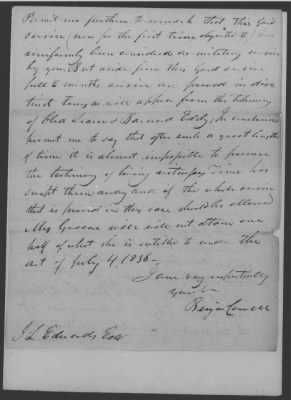 Permit me further to remark that this Gard
service, now for the first time objected to, has
uniformly been considered as military service
by you. But aside from this Gard service
full 6 months service are proved in dis
tinct tours as will appear from the testimony
of Obed Seaver & Barnard Eddy. In conclusion
permit me to say that after such a great length
of time it is almost impossible to procure
the testimony of living witnesses, time has
swept them away and if the whole service
that is proved in this case should be allowed
Mrs Greene will not obtain one
half of what she is entitled to under the
act of July 4, 1836 —
I am very respectfully
Yours &c
Benja Cowell
J L Edwards Esq